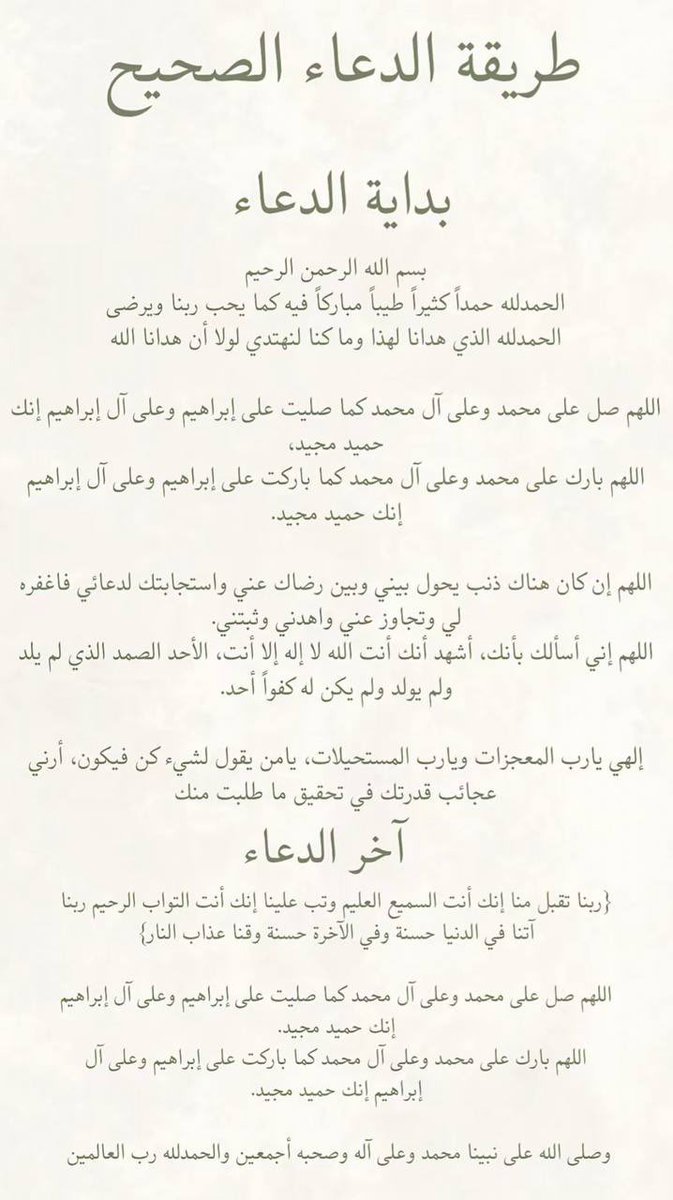 طريقة الدعاء الصحيح
بداية الدعاء
بسم الله الرحمن الرحيم
الحمدلله حمداً كثيراً طيباً مباركاً فيه كما يحب ربنا ويرضى
الحمدلله الذي هدانا لهذا وما كنا لنهتدي لولا أن هدانا الله
اللهم صل على محمد وعلى آل محمد كما صليت على إبراهيم وعلى آل إبراهيم إنك
حميد مجيد،
اللهم بارك على محمد وعلى آل محمد كما باركت على إبراهيم وعلى آل إبراهيم
إنك حميد مجيد.
اللهم إن كان هناك ذنب يحول بيني وبين رضاك عني واستجابتك لدعائي فاغفره
لي وتجاوز عني واهدني وثبتني.
اللهم إني أسألك بأنك، أشهد أنك أنت الله لا إله إلا أنت، الأحد الصمد الذي لم يلد
ولم يولد ولم يكن له كفواً أحد.
إلهي يارب المعجزات ويارب المستحيلات، يامن يقول لشيء كن فيكون، أرني
عجائب قدرتك في تحقيق ما طلبت منك
آخر الدعاء
{ربنا تقبل منا إنك أنت السميع العليم وتب علينا إنك أنت التواب الرحيم ربنا
آتنا في الدنيا حسنة وفي الآخرة حسنة وقنا عذاب النار}
اللهم صل على محمد وعلى آل محمد كما صليت على إبراهيم وعلى آل إبراهيم
إنك حميد مجيد.
اللهم بارك على محمد وعلى آل محمد كما باركت على إبراهيم وعلى آل
إبراهيم إنك حميد مجيد.
وصلى الله على نبينا محمد وعلى آله وصحبه أجمعين والحمدلله رب العالمين